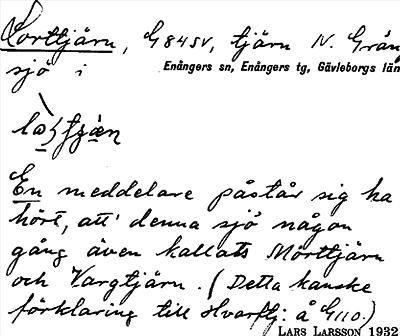 Lorttjärn, G 84 SV, tjärn N. Grång
sjö i
Enångers sn, Enångers tg, Gävleborgs län
En meddelare påstår sig ha
hört, att denna sjö någon
gång även kallats Mörttjärn
och Vargtjärn. (Detta kanske
förklaring till Hvarftj: å G110.)
LARS LARSSON 1932